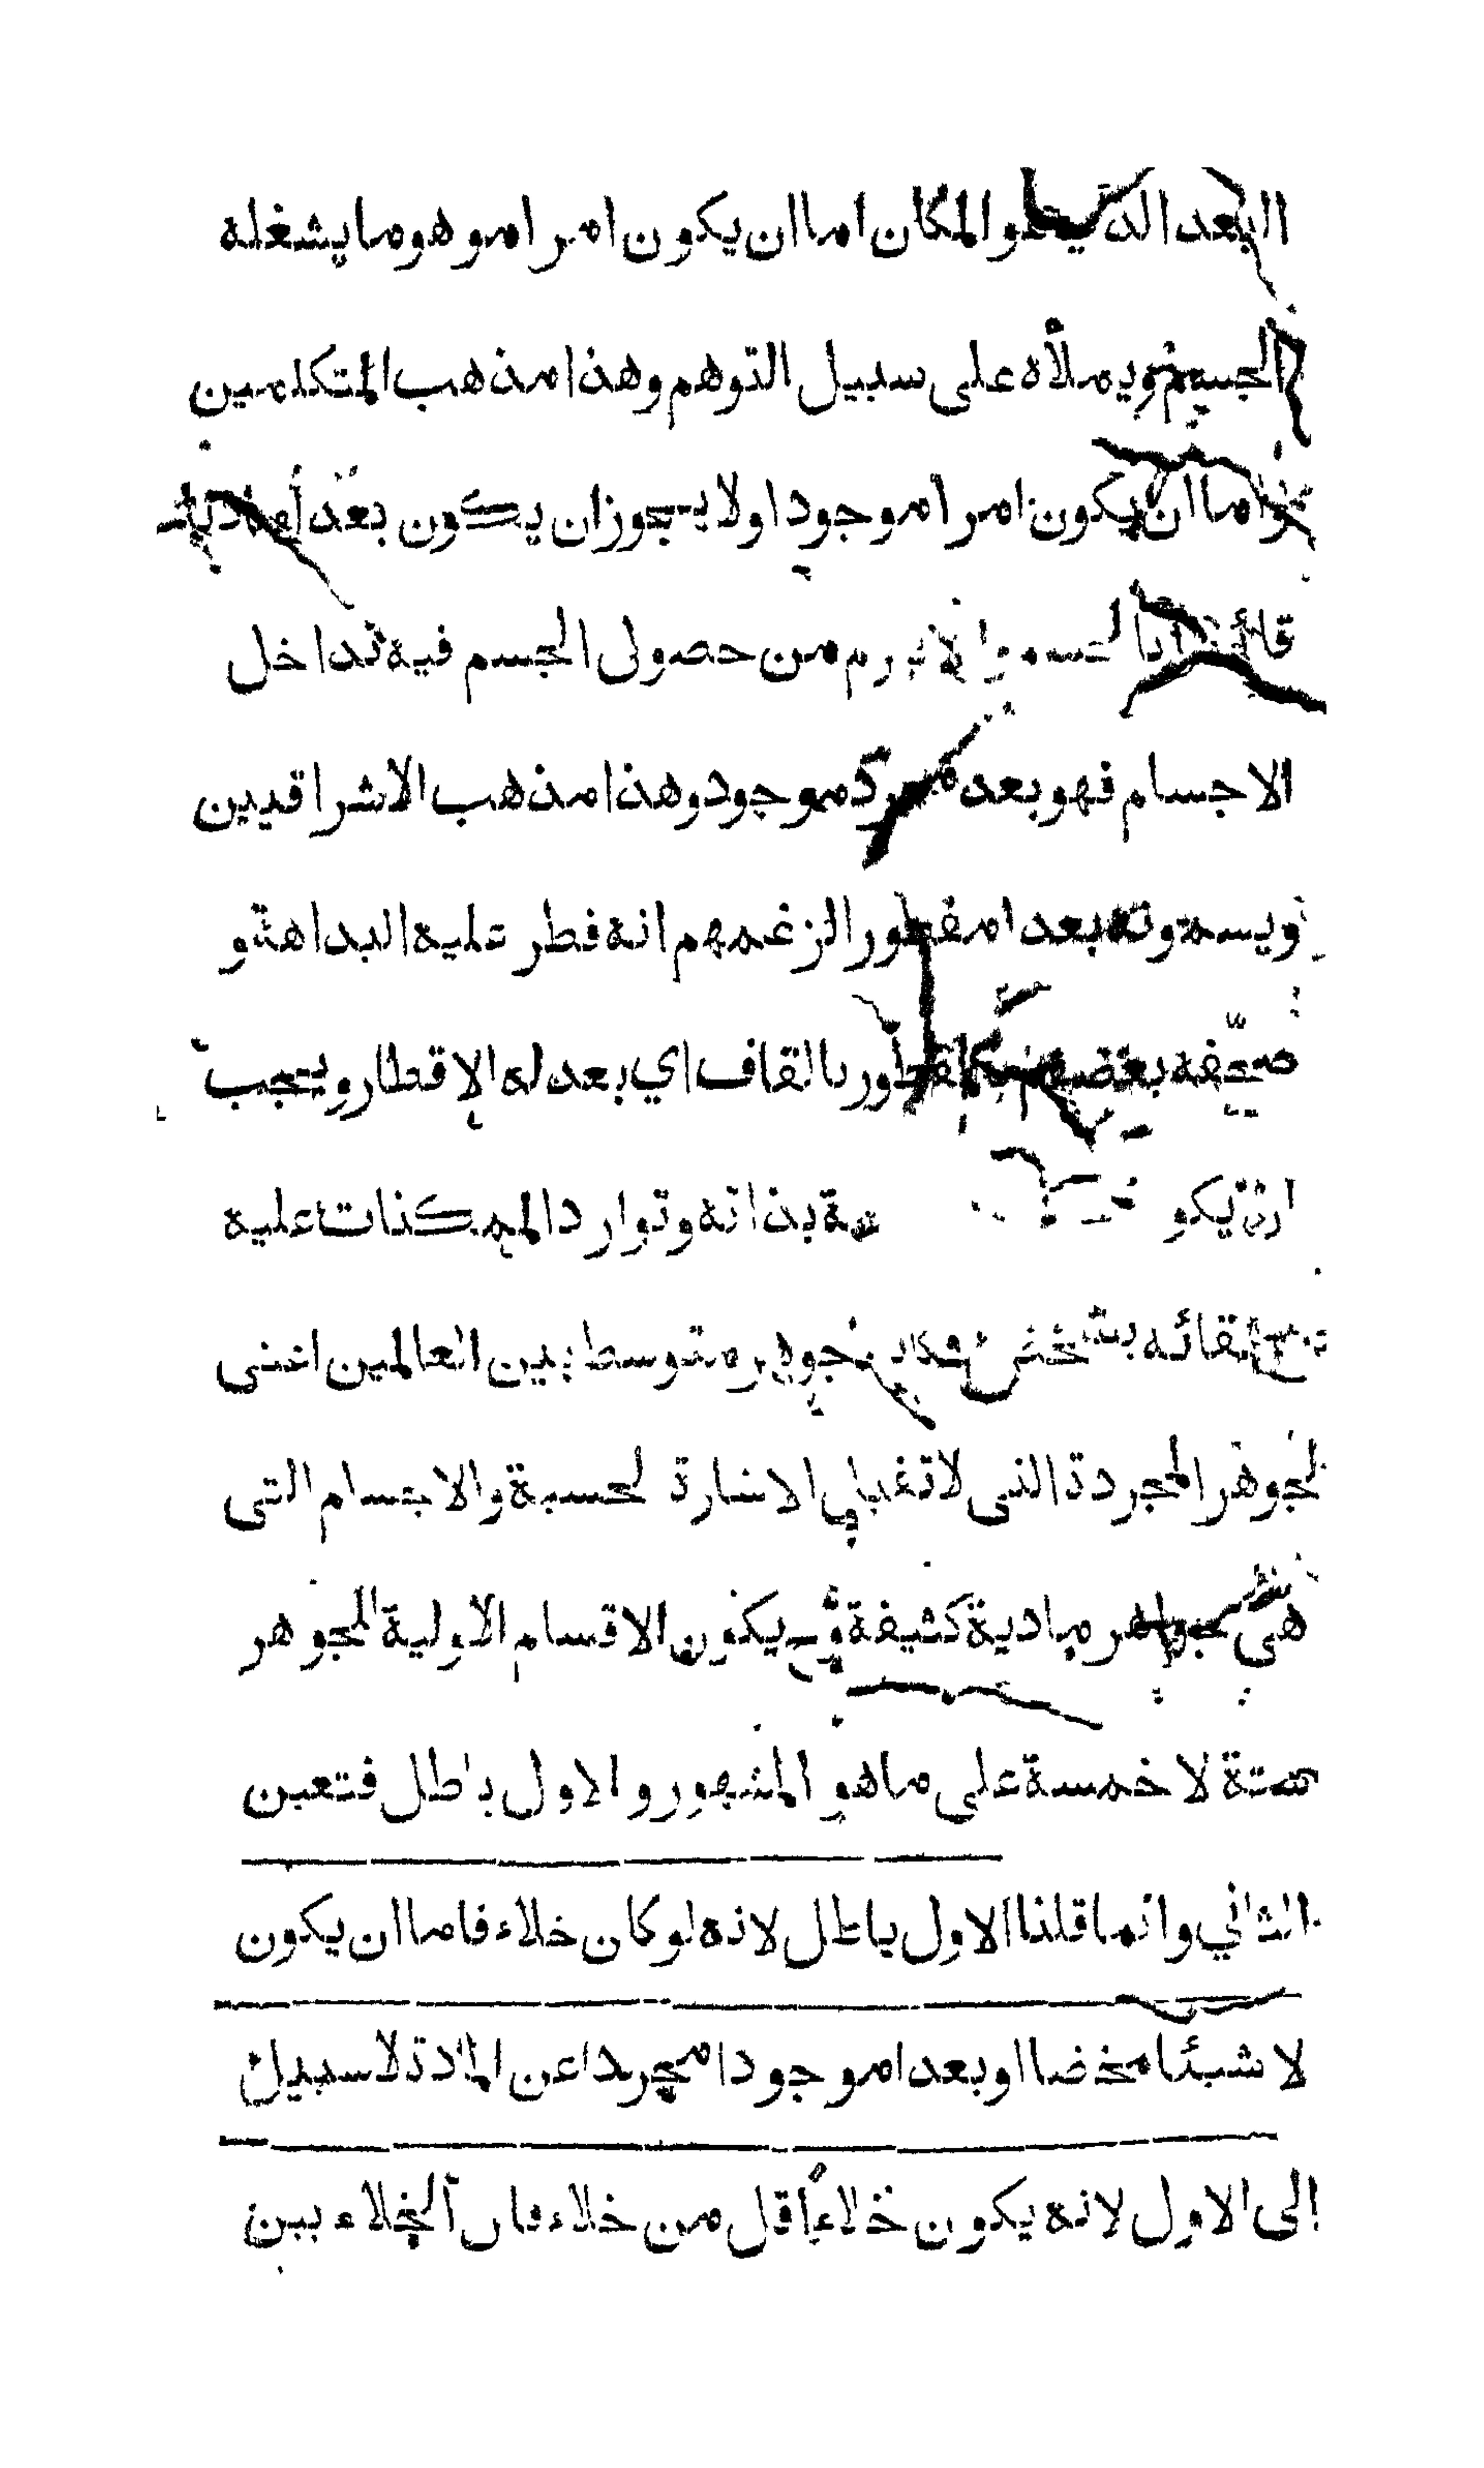 البعد الذى هو المكان اما ان يكون امرا موهوما يشغله
الجسم ويملأه على سبيل التوهم وهذا مذهب المتكلمين
واما ان يكون امرا موجودا ولا يجوز ان يكون بعدا ماديا
قائما بالجسم من حصول الجسم فيه تداخل
الاجسام فهو بعد مجرد موجود وهذا مذهب الاشراقيين
ويسمونه بعدا مفطورا لزعمهم انه فطر عليه البداهة و
صحفه بعضهم بالمقطور بالقاف اي بعد له الاقطار ويجب
ان يكو بذاته وتوارد الممكنات عليه
بقائه بشخصه جوهر متوسط بين العالمين اعنى
الجوهر المجردة التى لا تقبل الاشارة الحسية والاجسام التى
هى جواهر مادية كثيفة وح يكون الاقسام الاولية للجوهر
ستة لا خمسة على ما هو المشهور والاول باطل فتعين
الثاني وانما قلنا الاول باطل لانه لو كان خلاء فاما ان يكون
لا شيئا محضا او بعدا موجودا مجردا عن المادة لا سبيل
الى الاول لانه يكون خلاء أقل من خلاء فان الخلاء بين